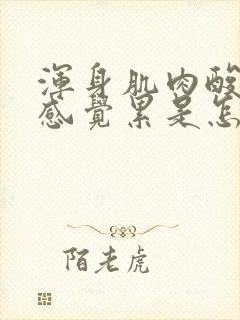 渾身肌肉酸
感覺累是怎
陌老虎